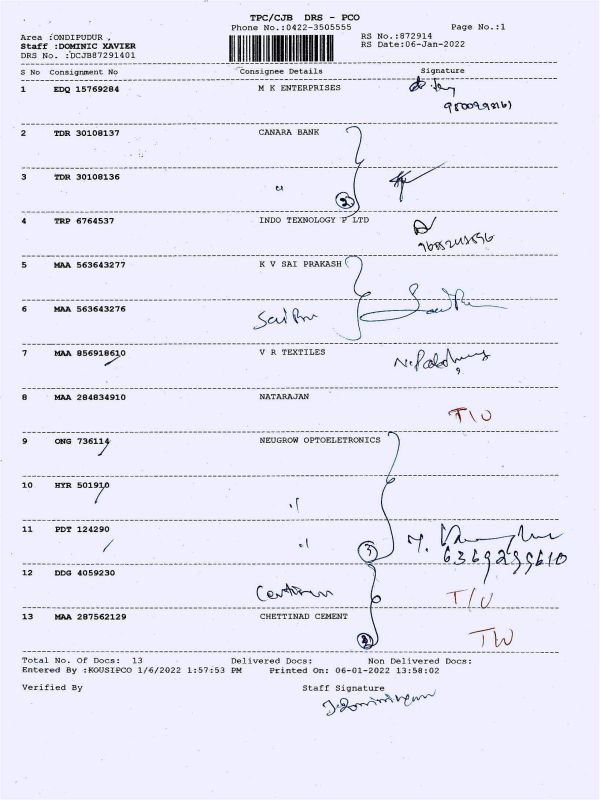 TPC/CJB DRS - PCO
Phone No.:0422-3505555 Page No.:1
Area :ONDIPUDUR , RS No.:872914
Staff :DOMINIC XAVIER RS Date:06-Jan-2022
DRS No. :DCJB87291401
S No Consignment No Consignee Details Signature
1 EDQ 15769284 M K ENTERPRISES
2 TDR 30108137 CANARA BANK
3 TDR 30108136 "
2
4 TRP 6764537 INDO TEXNOLOGY P LTD
5 MAA 563643277 K V SAI PRAKASH
6 MAA 563643276
7 MAA 856918610 V R TEXTILES
8 MAA 284834910 NATARAJAN
9 ONG 736114 NEUGROW OPTOELETRONICS
10 HYR 501910 "
11 PDT 124290 " 3
12 DDG 4059230
13 MAA 287562129 CHETTINAD CEMENT
Total No. Of Docs: 13 Delivered Docs: Non Delivered Docs:
Entered By :KOUSIPCO 1/6/2022 1:57:53 PM Printed On: 06-01-2022 13:58:02
Verified By Staff Signature